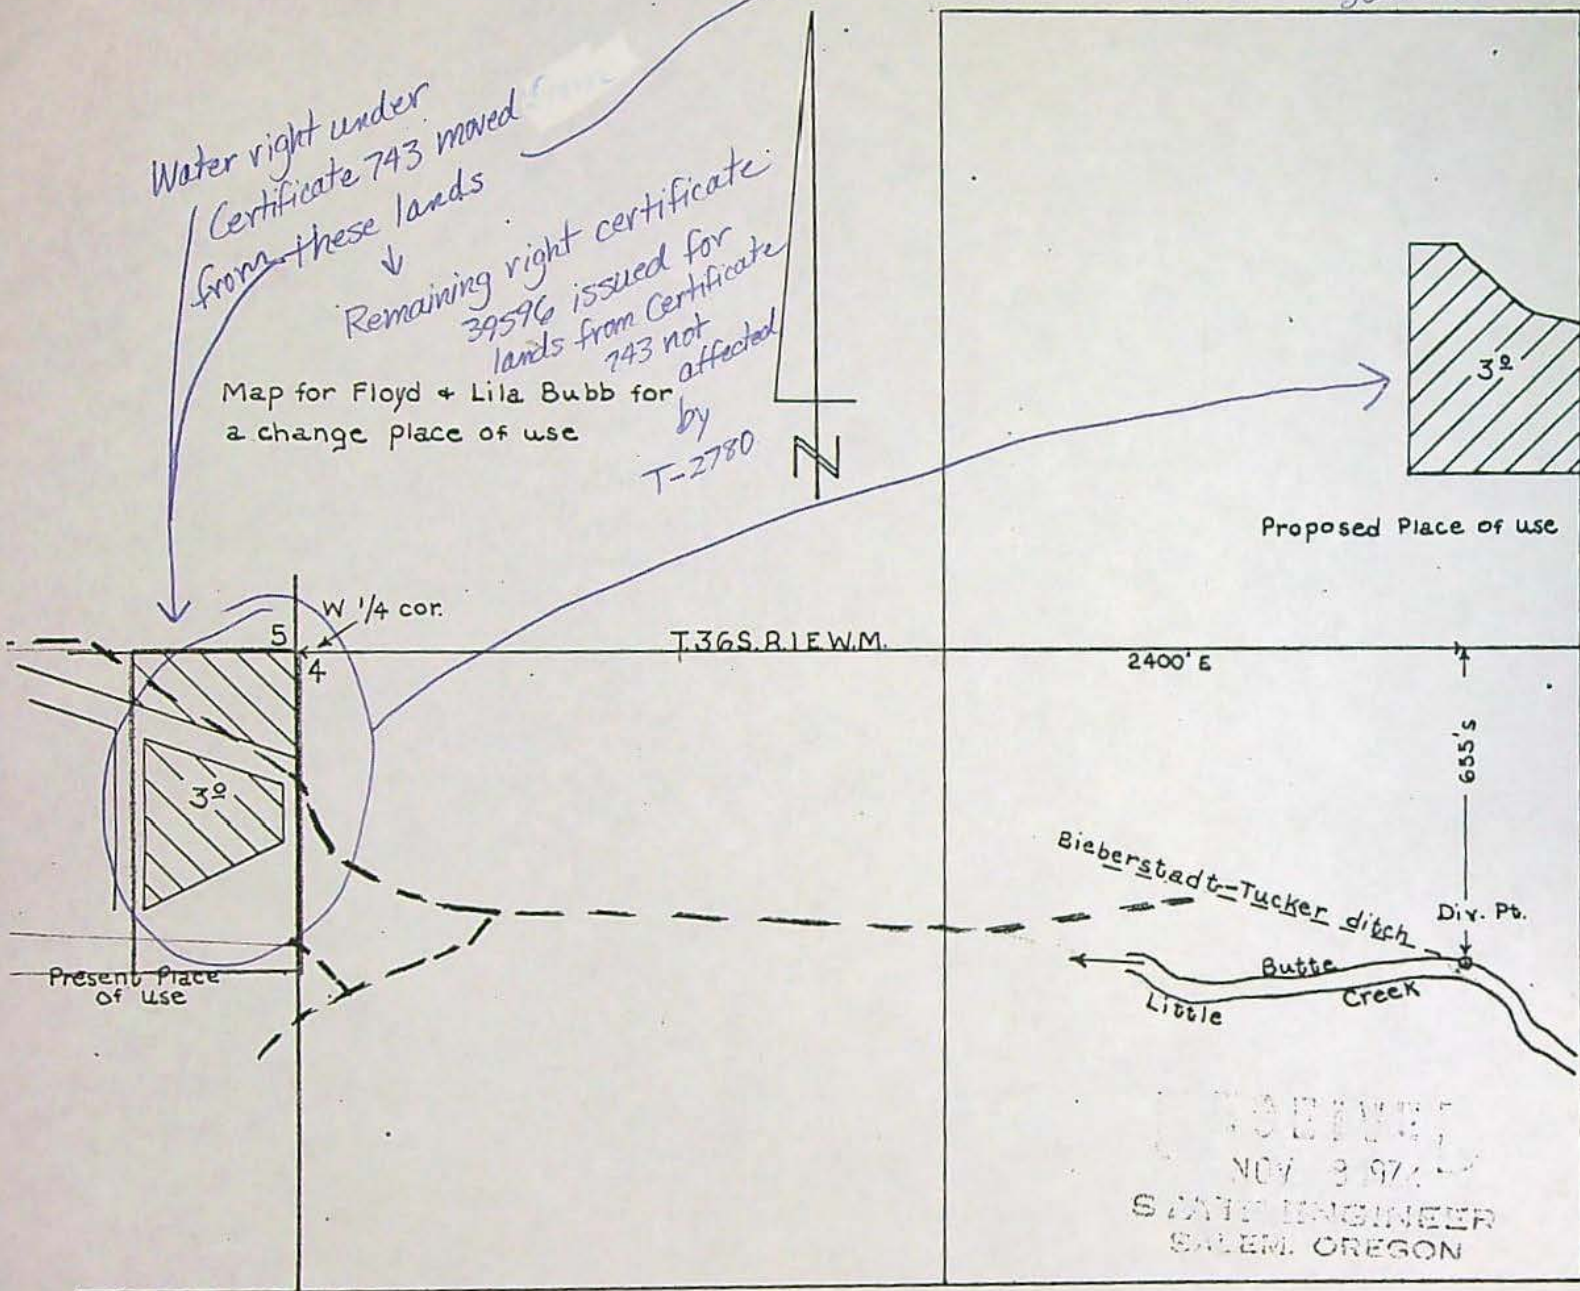 Water right under
Certificate 743 moved
from these lands
Remaining right certificate
39596 issued for
lands from Certificate
743 not
affected
by
T-2780
Map for Floyd & Lila Bubb for
a change place of use
N
3º
Proposed Place of use
W 1/4 cor.
5
4
T.36S.R.1E.W.M.
2400' E
655's
3º
Bieberstadt-Tucker ditch
Div. Pt.
Butte
Creek
Little
Present Place
of use
NOV
STATE ENGINEER
SALEM. OREGON